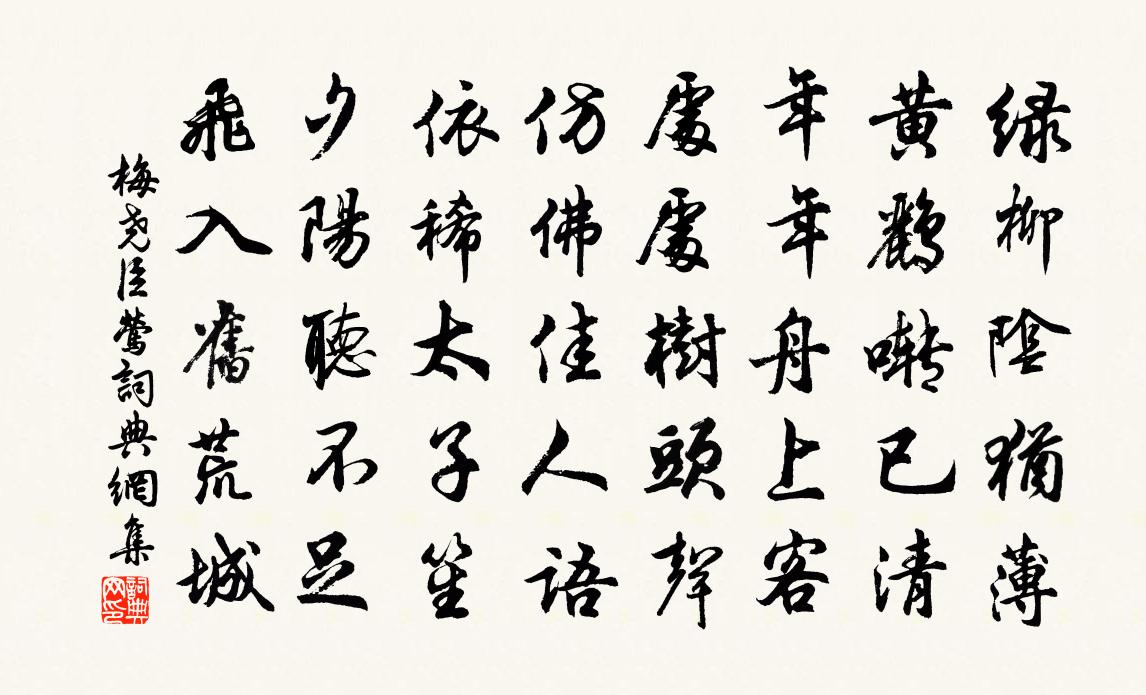 绿柳陰猶薄
黄鸝囀已清
年年舟上客
處處樹頭聲
仿佛佳人語
依稀太子笙
夕陽聽不足
飛入舊荒城
梅尧臣莺詞典網集
詞典网印